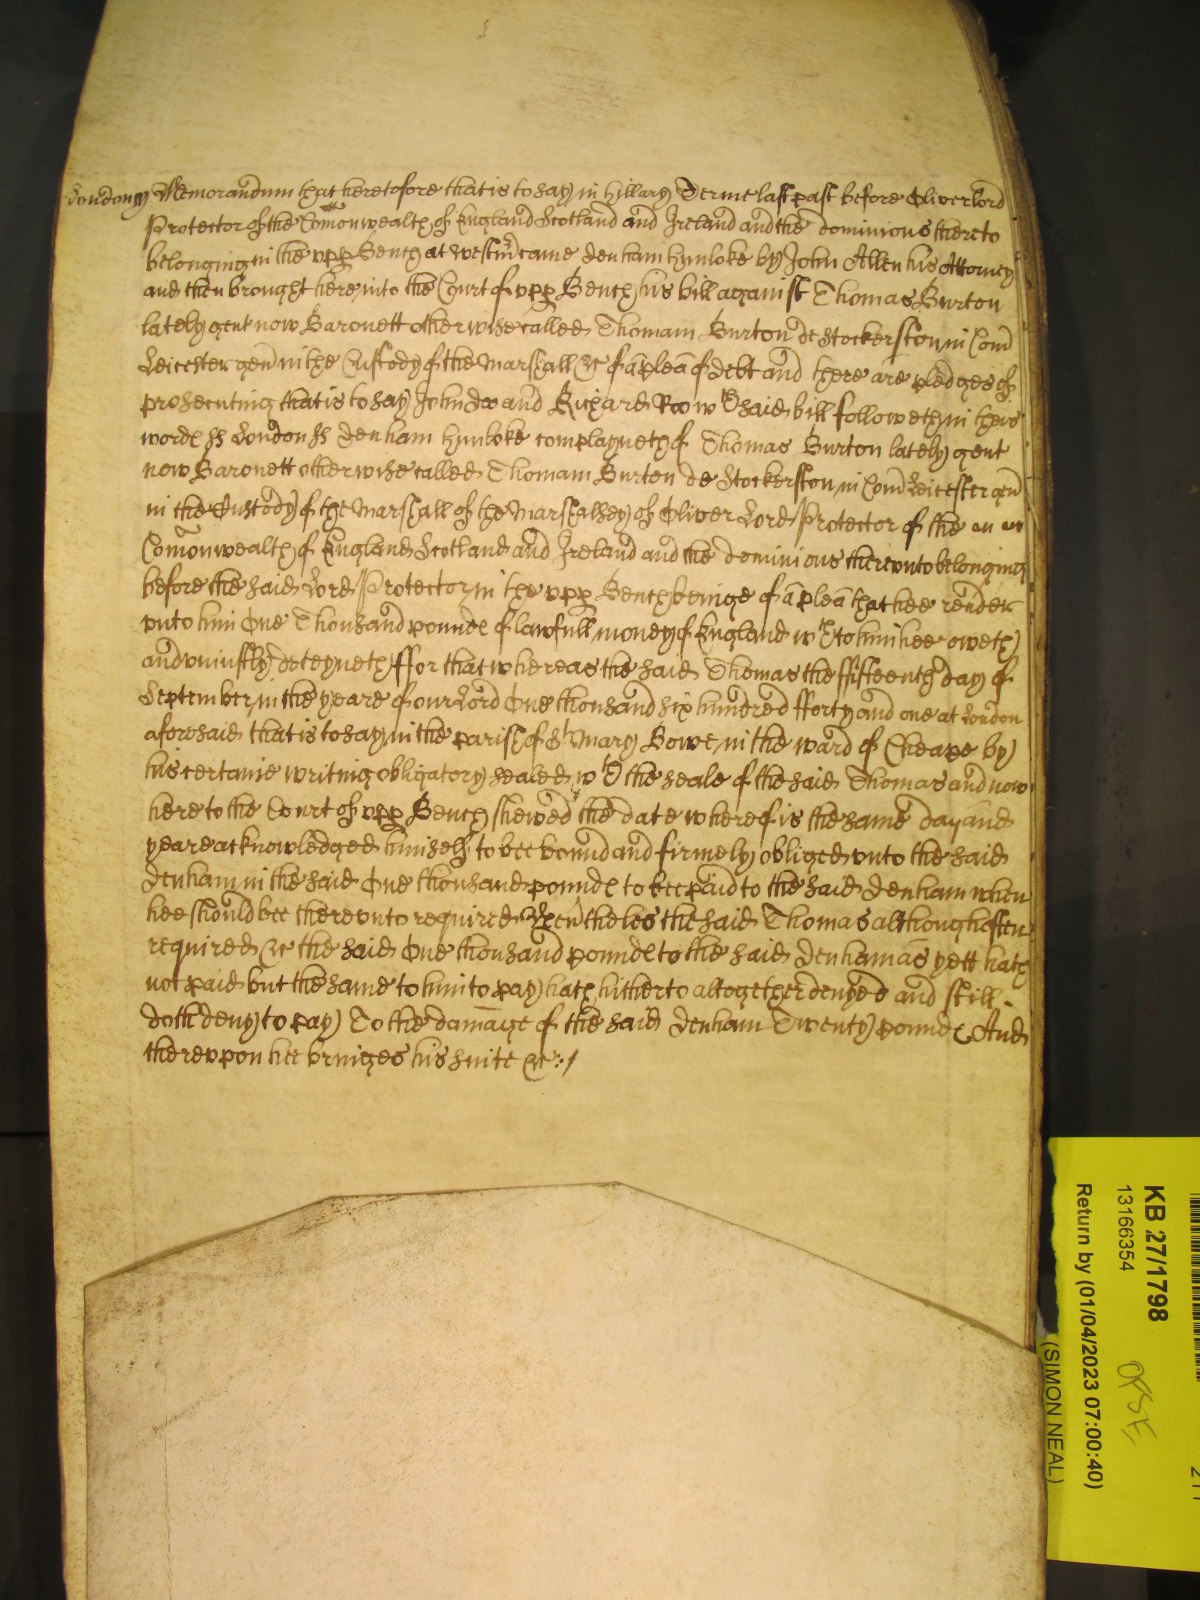 London ss Memorandum that heretofore that is to say in Hillary Terme last past before Oliver Lord
Protector of the Comonwealth of England Scotland and Ireland and the dominions thereto
belonging in the upp Bench at Westmr came Denham Hunloke by John Allen his Attorney
and then brought here into the Court of upp Bench his bill against Thomas Burton
lately gent now Baronett otherwise called Thomam Burton de Stockerston in Com
Leicester gen in the Custody of the Marshall &c of a plea of debt and there are pledges of
prosecuting that is to say John Doo and Richard Roo wch said bill followeth in theis
words ss London ss Denham Hunloke complayneth of Thomas Burton lately gent
now Baronett otherwise called Thomam Burton de Stockerston in Com Leicester gen
in the Custody of the Marshall of the Marshalsey of Oliver Lord Protector of the
Comonwealth of England Scotland and Ireland and the dominions thereunto belonging
before the said Lord Protector in the upp Bench beinge of a plea that hee render
unto him One Thousand pounds of lawfull money of England wch to him hee oweth
and uniustly deteyneth ffor that whereas the said Thomas the ffifteenth day of
September in the yeare of our Lord One thousand six hundred fforty and one at London
aforesaid that is to say in the parish of St Mary Bowe in the ward of Cheape by
his certaine writing obligatory sealed wth the seale of the said Thomas and now
here to the Court of upp Bench shewed the date whereof is the same day and
yeare acknowledged himself to bee bound and firmely obliged unto the said
Denham in the said One thousand pounds to bee paid to the said Denham when
hee should bee thereunto required Neverthelesse the said Thomas although often
required &c the said One thousand pounds to the said Denham as yett hath
not paid but the same to him to pay hath hitherto altogether denyed and still
doth deny to pay To the damage of the said Denham Twenty pounds And
thereupon hee bringes his suite &c
KB 27/1798
13166354
Return by (01/04/2023 07:00:40)
(SIMON NEAL)